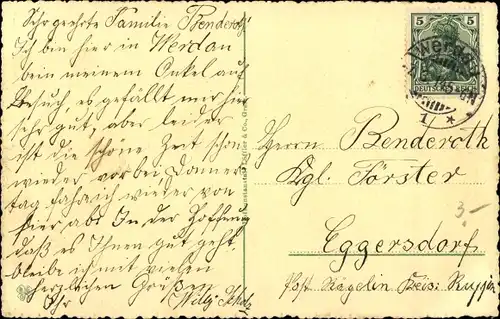 Sehr geehrte Familie Benderoth
Ich bin hier in Werdau
bein meinem Onkel auf
Besuch, es gefällt mir hier
sehr gut, aber leider
ist die schöne Zeit schon
wieder vorbei Donners
tag fahre ich wieder von
hier ab. In der Hoffnung
daß es Ihnen gut geht
bleibe ich mit vielen
herzlichen Grüßen
Ihr Willy
5 5
DEUTSCHES REICH
Werdau
1 *
Herrn Benderoth
Kgl. Förster
3-
Eggersdorf
Post Kagelin Beis.